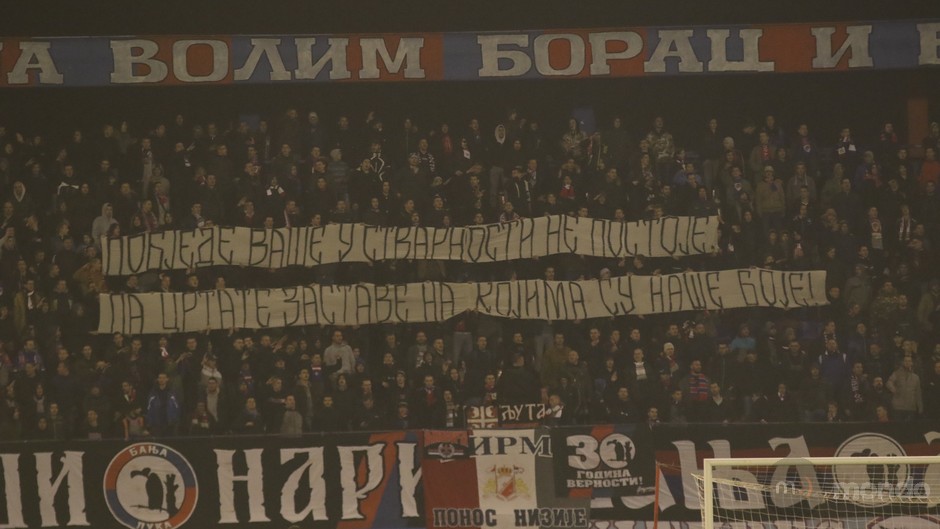 А ВОЛИМ БОРАЦ И
ПОБЈЕДЕ ВАШЕ У СТВАРНОСТИ НЕ ПОСТОЈЕ,
ПА ЦРТАТЕ ЗАСТАВЕ НА КОЈИМА СУ НАШЕ БОЈЕ!
ЉУТА
БАЊА
ЛУКА
НАРИ
ИРМ
ПОНОС НИЗИЈЕ
30
ГОДИНА
ВЕРНОСТИ!